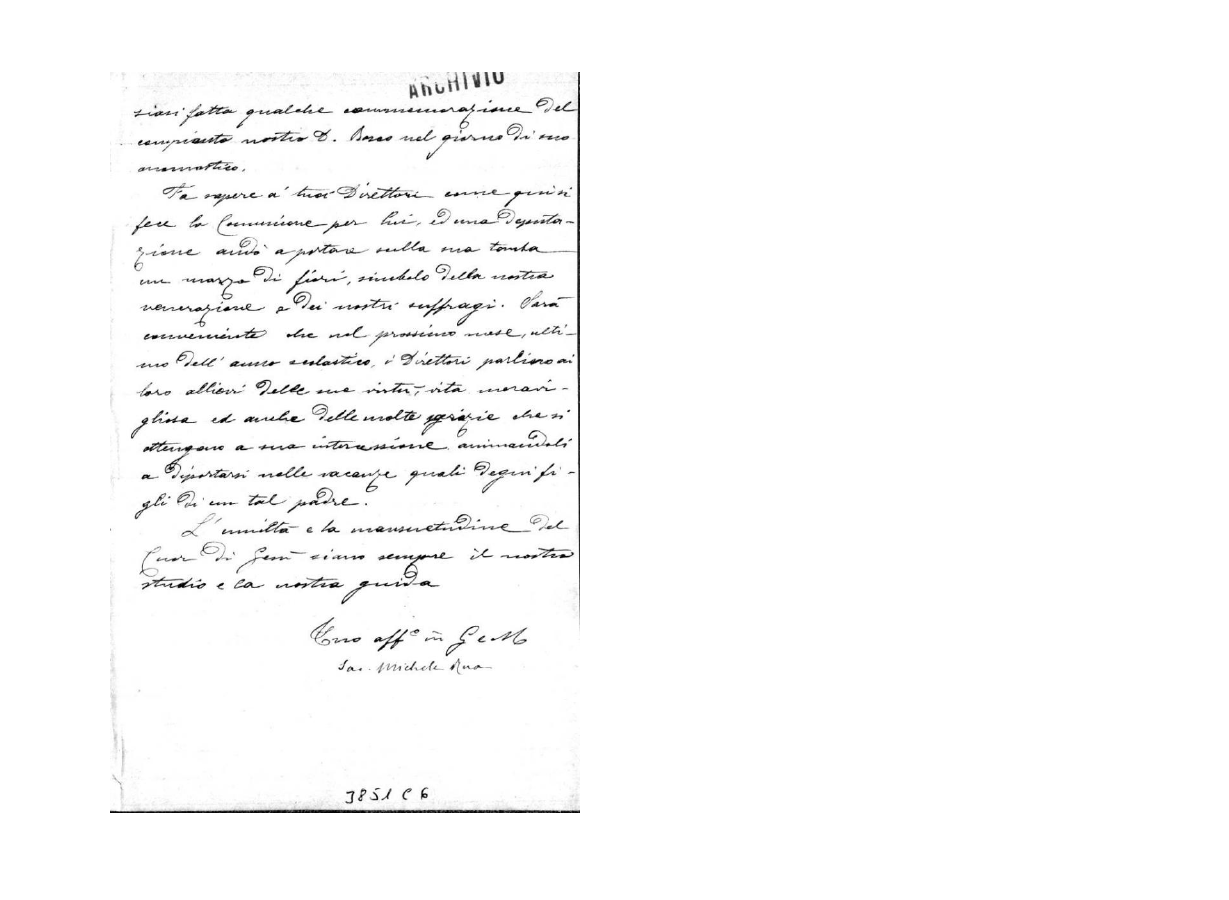 ARCHIVIO
siasi fatta qualche commemorazione del
compianto nostro D. Bosco nel giorno di suo
onomastico.
Fa sapere a' tuoi Direttori come qui si
fece la Comunione per lui, ed una deputa-
zione andò a portare sulla sua tomba
un mazzo di fiori, simbolo della nostra
venerazione e dei nostri suffragi. Sarà
conveniente che nel prossimo mese, ulti-
mo dell' anno scolastico, i Direttori parlino ai
loro allievi delle sue virtù, vita meravi-
gliosa ed anche delle molte grazie che si
ottengono a sua intercessione animandoli
a diportarsi nelle vacanze quali degni fi-
gli di un tal padre.
L' umiltà e la mansuetudine del
Cuor di Gesù siano sempre il nostro
studio e la nostra guida
Tuo aff.º in G e M
Sac. Michele Rua
3851 C 6